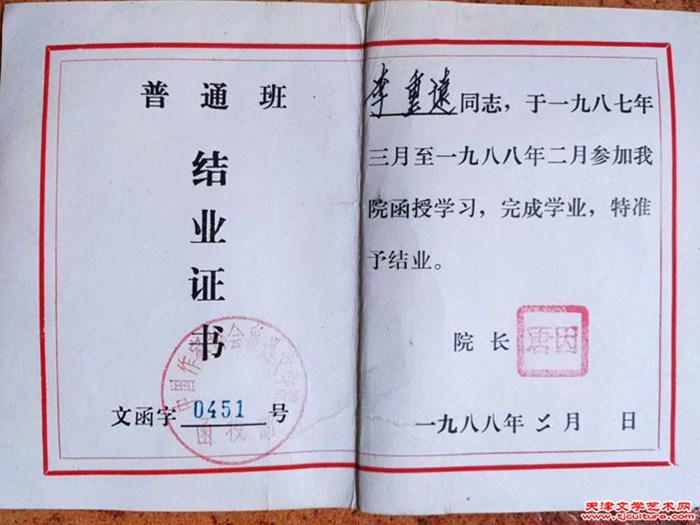 普通班
结业证书
文函字 0451 号
李重远同志，于一九八七年
三月至一九八八年二月参加我
院函授学习，完成学业，特准
予结业。
院长
唐因
一九八八年 二月 日
天津文学艺术网
www.tjculture.com